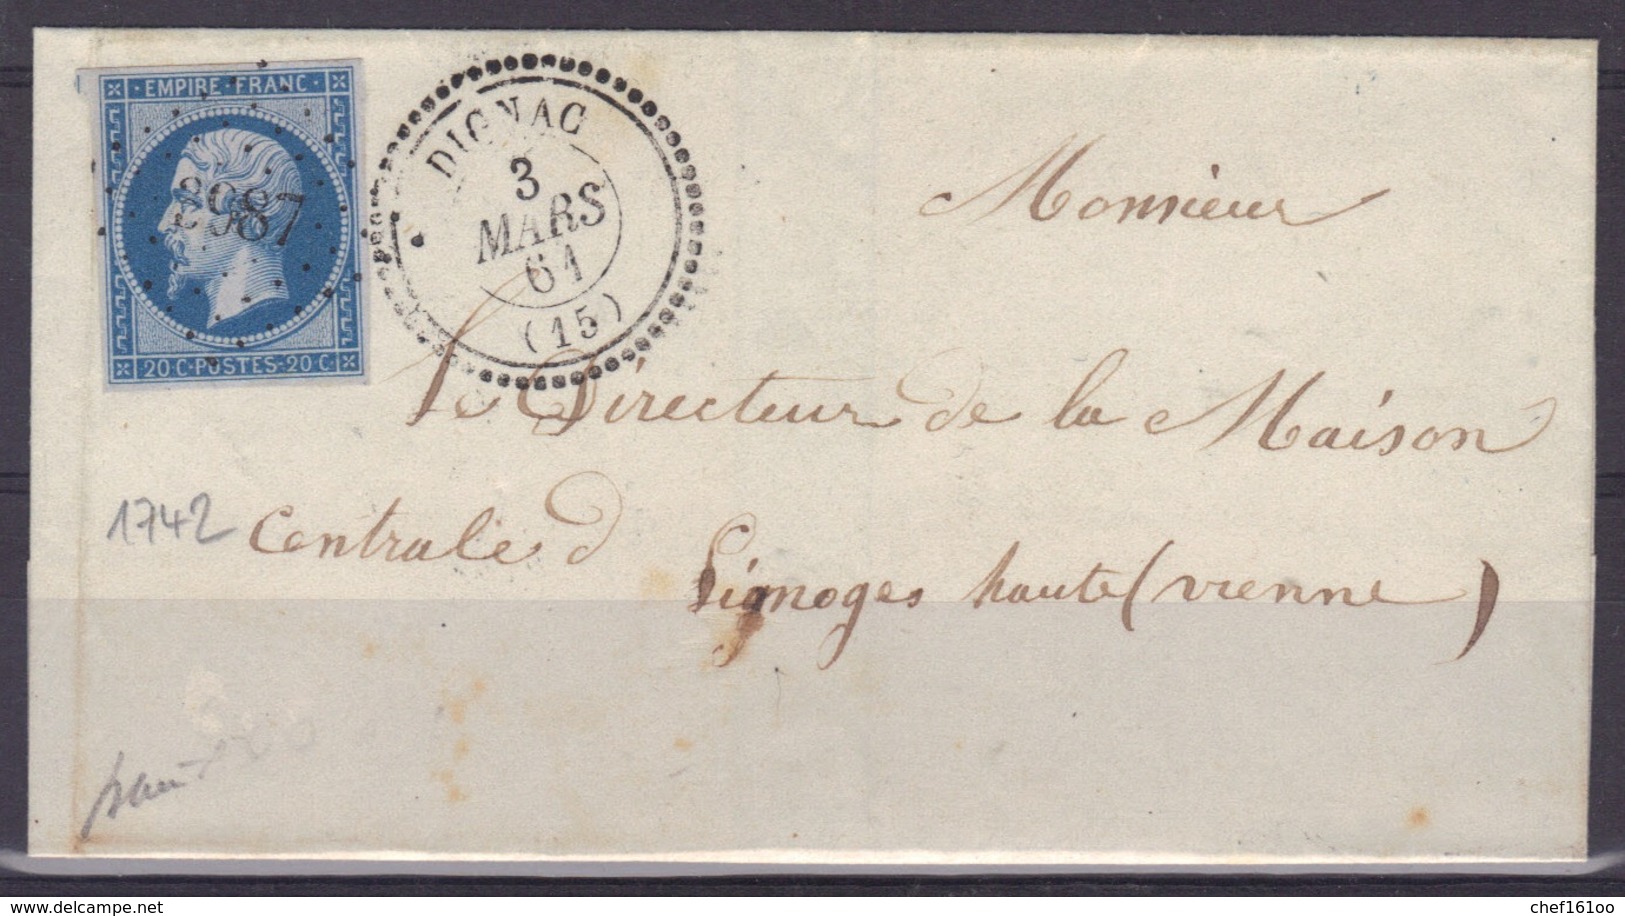 EMPIRE FRANC
3987
20 C POSTES 20 C
DIGNAC
3
MARS
61
(15)
Monsieur
le Directeur de la Maison
1742
Centrale d
Limoges haute (vienne)
delcampe.net
chef16100